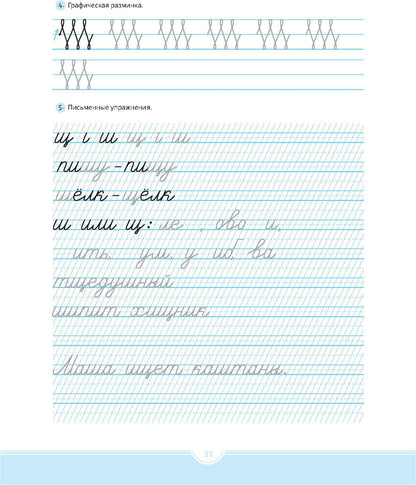 4 Графическая разминка.
5 Письменные упражнения.
щ и ш щ и ш
пишу – пищу
шёлк – щёлк
ш или щ: ле , ово и,
ить, ум, у
тщедушный
шипит хищник
Маша ищет каштаны.
31